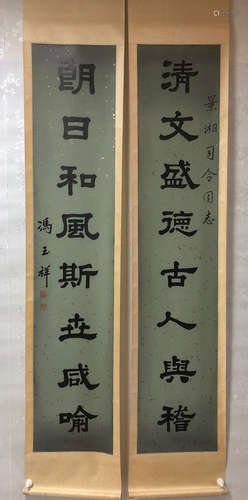 景湘司令同志
清文盛德古人與稽
朗日和風斯世咸喻
馮玉祥